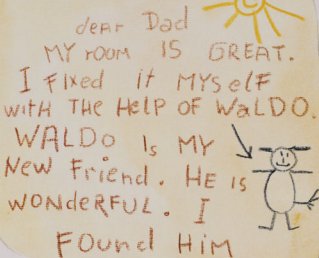 dear Dad
MY rOOM IS GREAT.
I FIxed it MYSelF
wITH THE HelP OF WaLDO.
WALDO Is MY
New Friend. HE IS
wONdeRFUL. I
FOUNd HIM